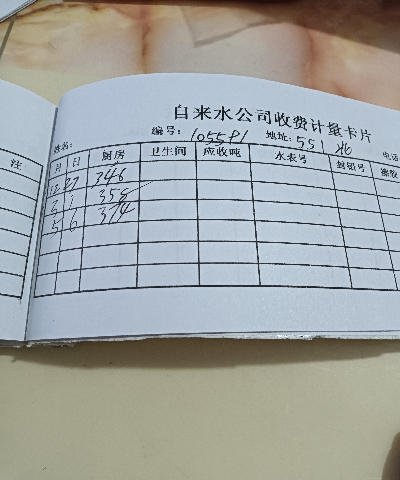 自来水公司收费计量卡片
姓名: 编号: 105581 地址: 551 电话
注
月 日 厨房 卫生间 应收吨 水表号 封铅号
12 27 346
3 1 358
5 6 374